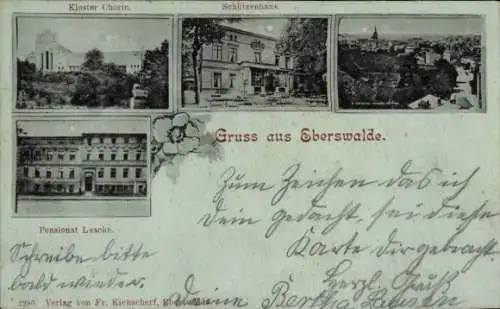 Kloster Chorin.
Schützenhaus.
Gruss aus Eberswalde.
Pensionat Lescke.
Zum Zeichen das ich
Dein gedacht, sei diese
Karte Dir gebracht.
Herzl. Gruß
Deine Bertha
Schreibe bitte
bald wieder.
2280. Verlag von Fr. Kienscherf, Eberswalde